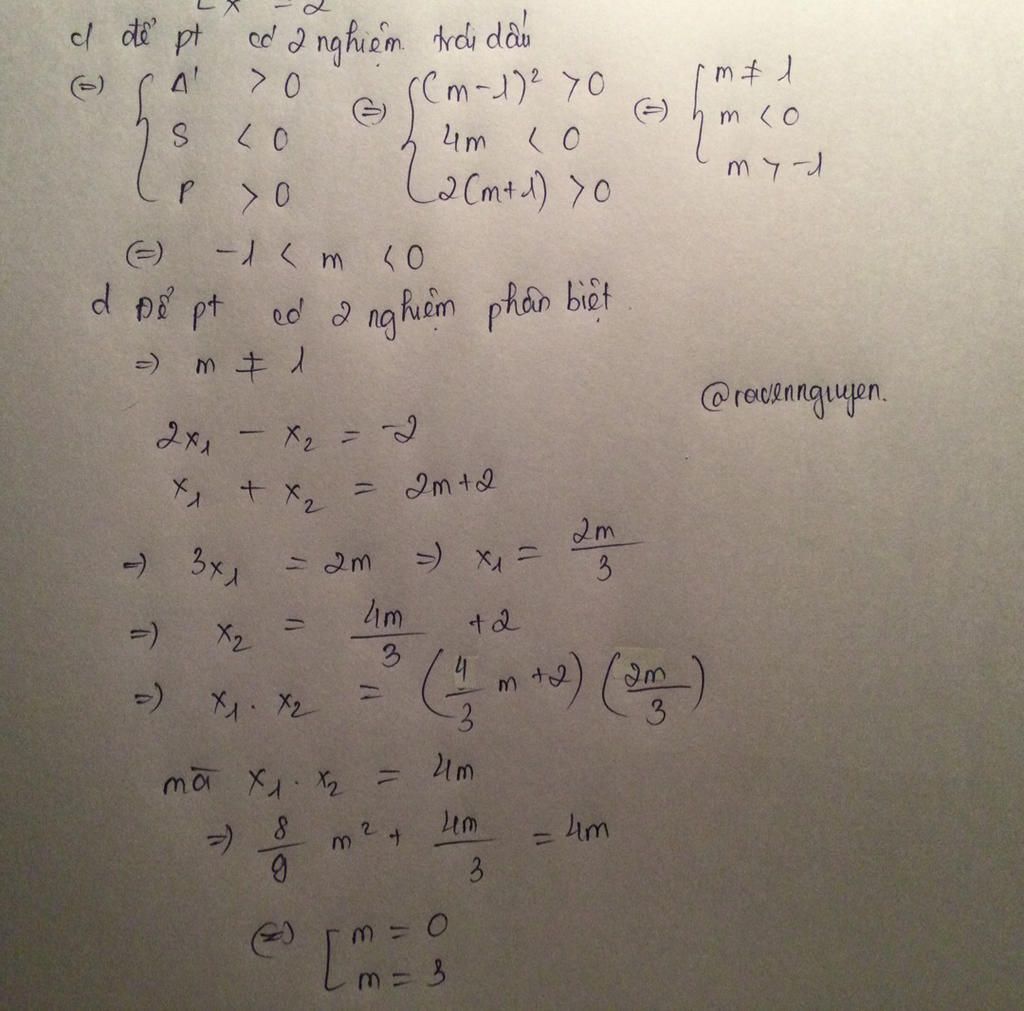 [x = 2
c) để pt có 2 nghiệm trái dấu
(=) { Δ' > 0 (=) { (m-1)² > 0 (=) { m ≠ 1
S < 0 4m < 0 m < 0
P > 0 2(m+1) > 0 m > -1
(=) -1 < m < 0
d Để pt có 2 nghiệm phân biệt.
=) m ≠ 1
@ravennguyen.
2x₁ - x₂ = -2
x₁ + x₂ = 2m+2
=) 3x₁ = 2m =) x₁ = 2m/3
=) x₂ = 4m/3 +2
=) x₁ . x₂ = (4/3 m +2) (2m/3)
mà x₁ . x₂ = 4m
=) 8/9 m² + 4m/3 = 4m
(=) [ m = 0
m = 3